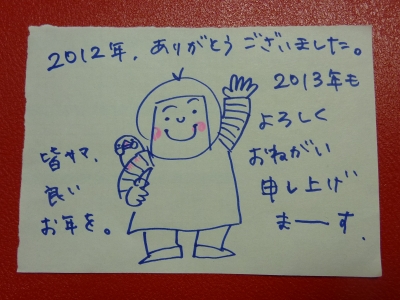 2012年、ありがとうございました。
2013年も
よろしく
おねがい
申し上げ
まーす.
皆サマ、
良い
お年を。